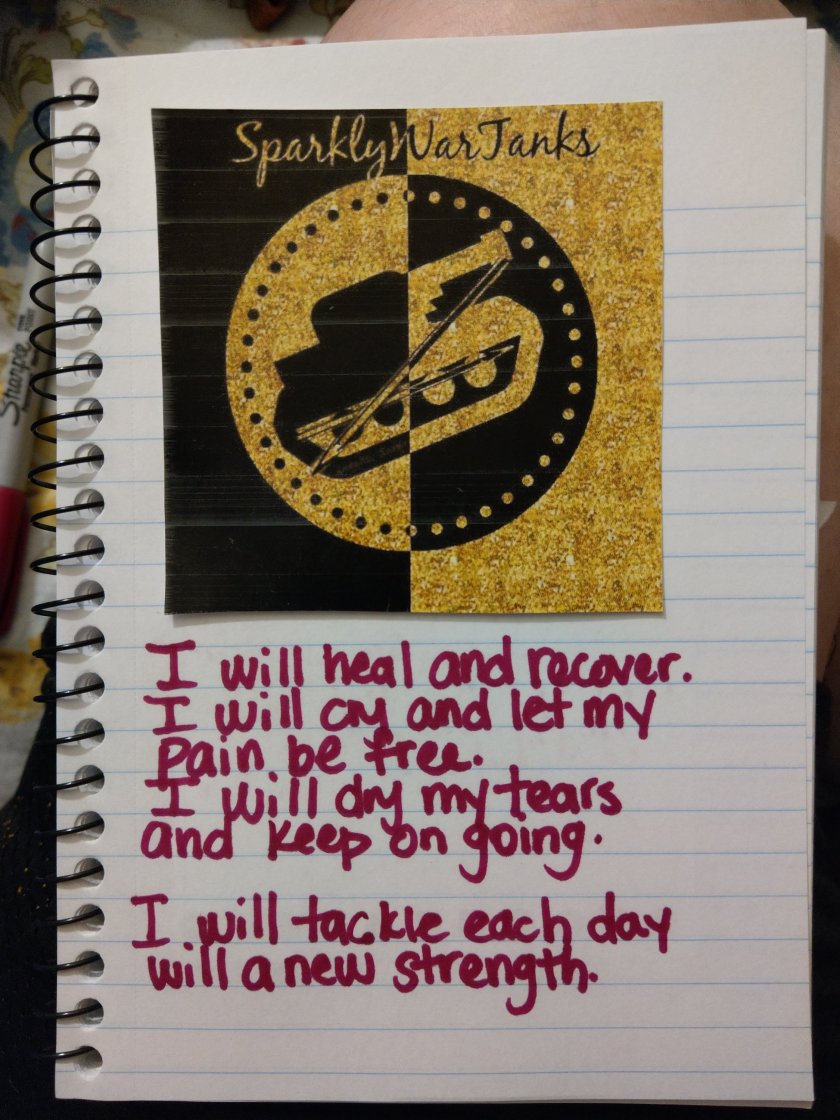 SparklyWarTanks
Sharpie
I will heal and recover.
I will cry and let my
pain be free.
I will dry my tears
and keep on going.
I will tackle each day
will a new strength.